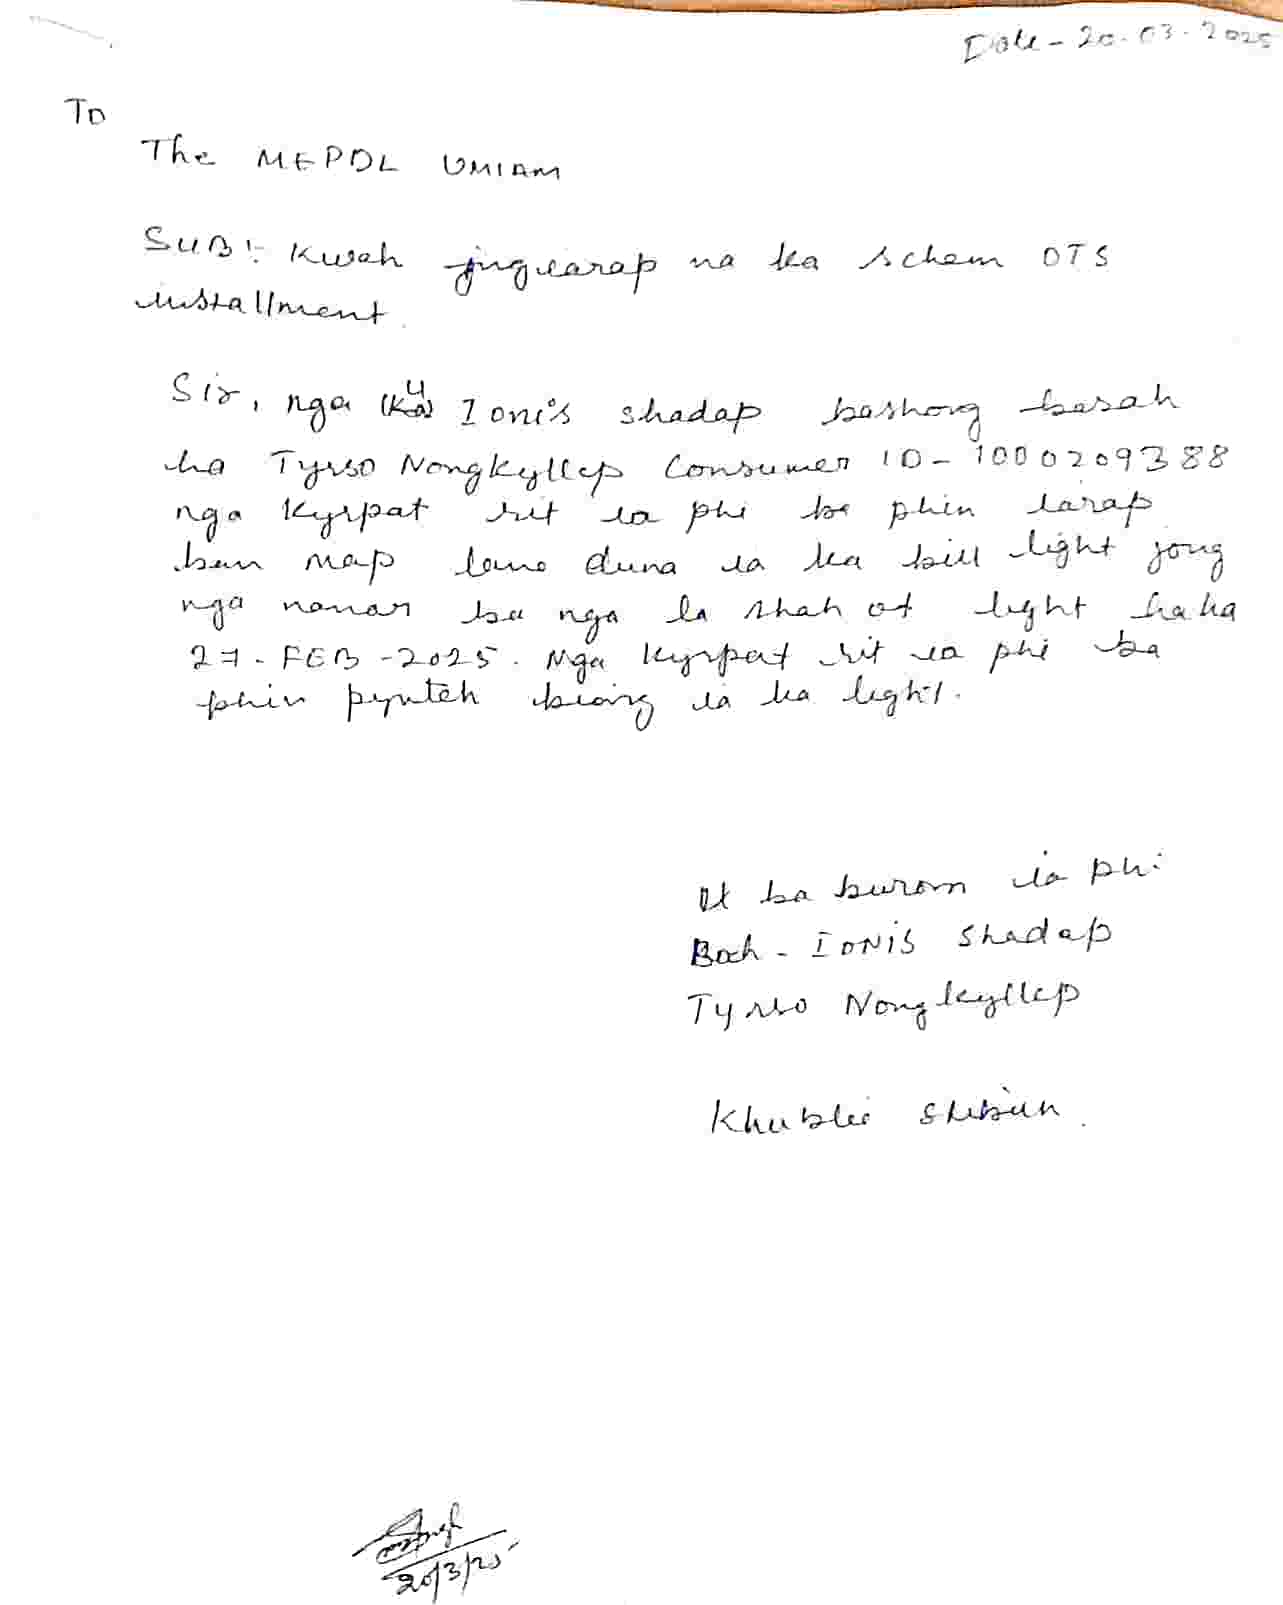 Date - 20.03.2025
To
The MEPDL UMIAM
SUB:- Kwah jingiarap na ka schem OTS
installment.
Sir, nga (Ka) U Ionis shadap bashong basah
ha Tyrso Nongkyllep Consumer ID - 1000209388
nga Kyrpat rit ia phi ba phin iarap
ban map lane duna ia ka bill light jong
nga namar ba nga la shah ot light haka
27-FEB-2025. Nga kyrpat rit ia phi ba
phin pynteh biang ia ka light.
Ut ba burom ia phi
Bah - IONIS Shadap
Tyrso Nongkyllep
Khublei Shibun.
20/3/25